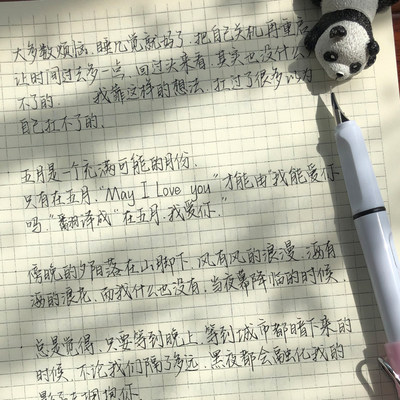 大多数烦恼，睡几觉就好了，把自己关机再重启
让时间过去多一点，回过头来看，其实也没什么
不了的。 我靠这样的想法，扛过了很多以为
自己扛不了的。
五月是一个充满可能的月份.
只有在五月，"May I love you"才能由"我能爱你
吗"翻译成"在五月，我爱你。"
傍晚的夕阳落在山脚下，风有风的浪漫，海有
海的浪花，而我什么也没有，当夜幕降临的时候，
总是觉得，只要等到晚上，等到城市都暗下来的
时候，不论我们隔了多远，黑夜都会融化我的
影子去拥抱你.